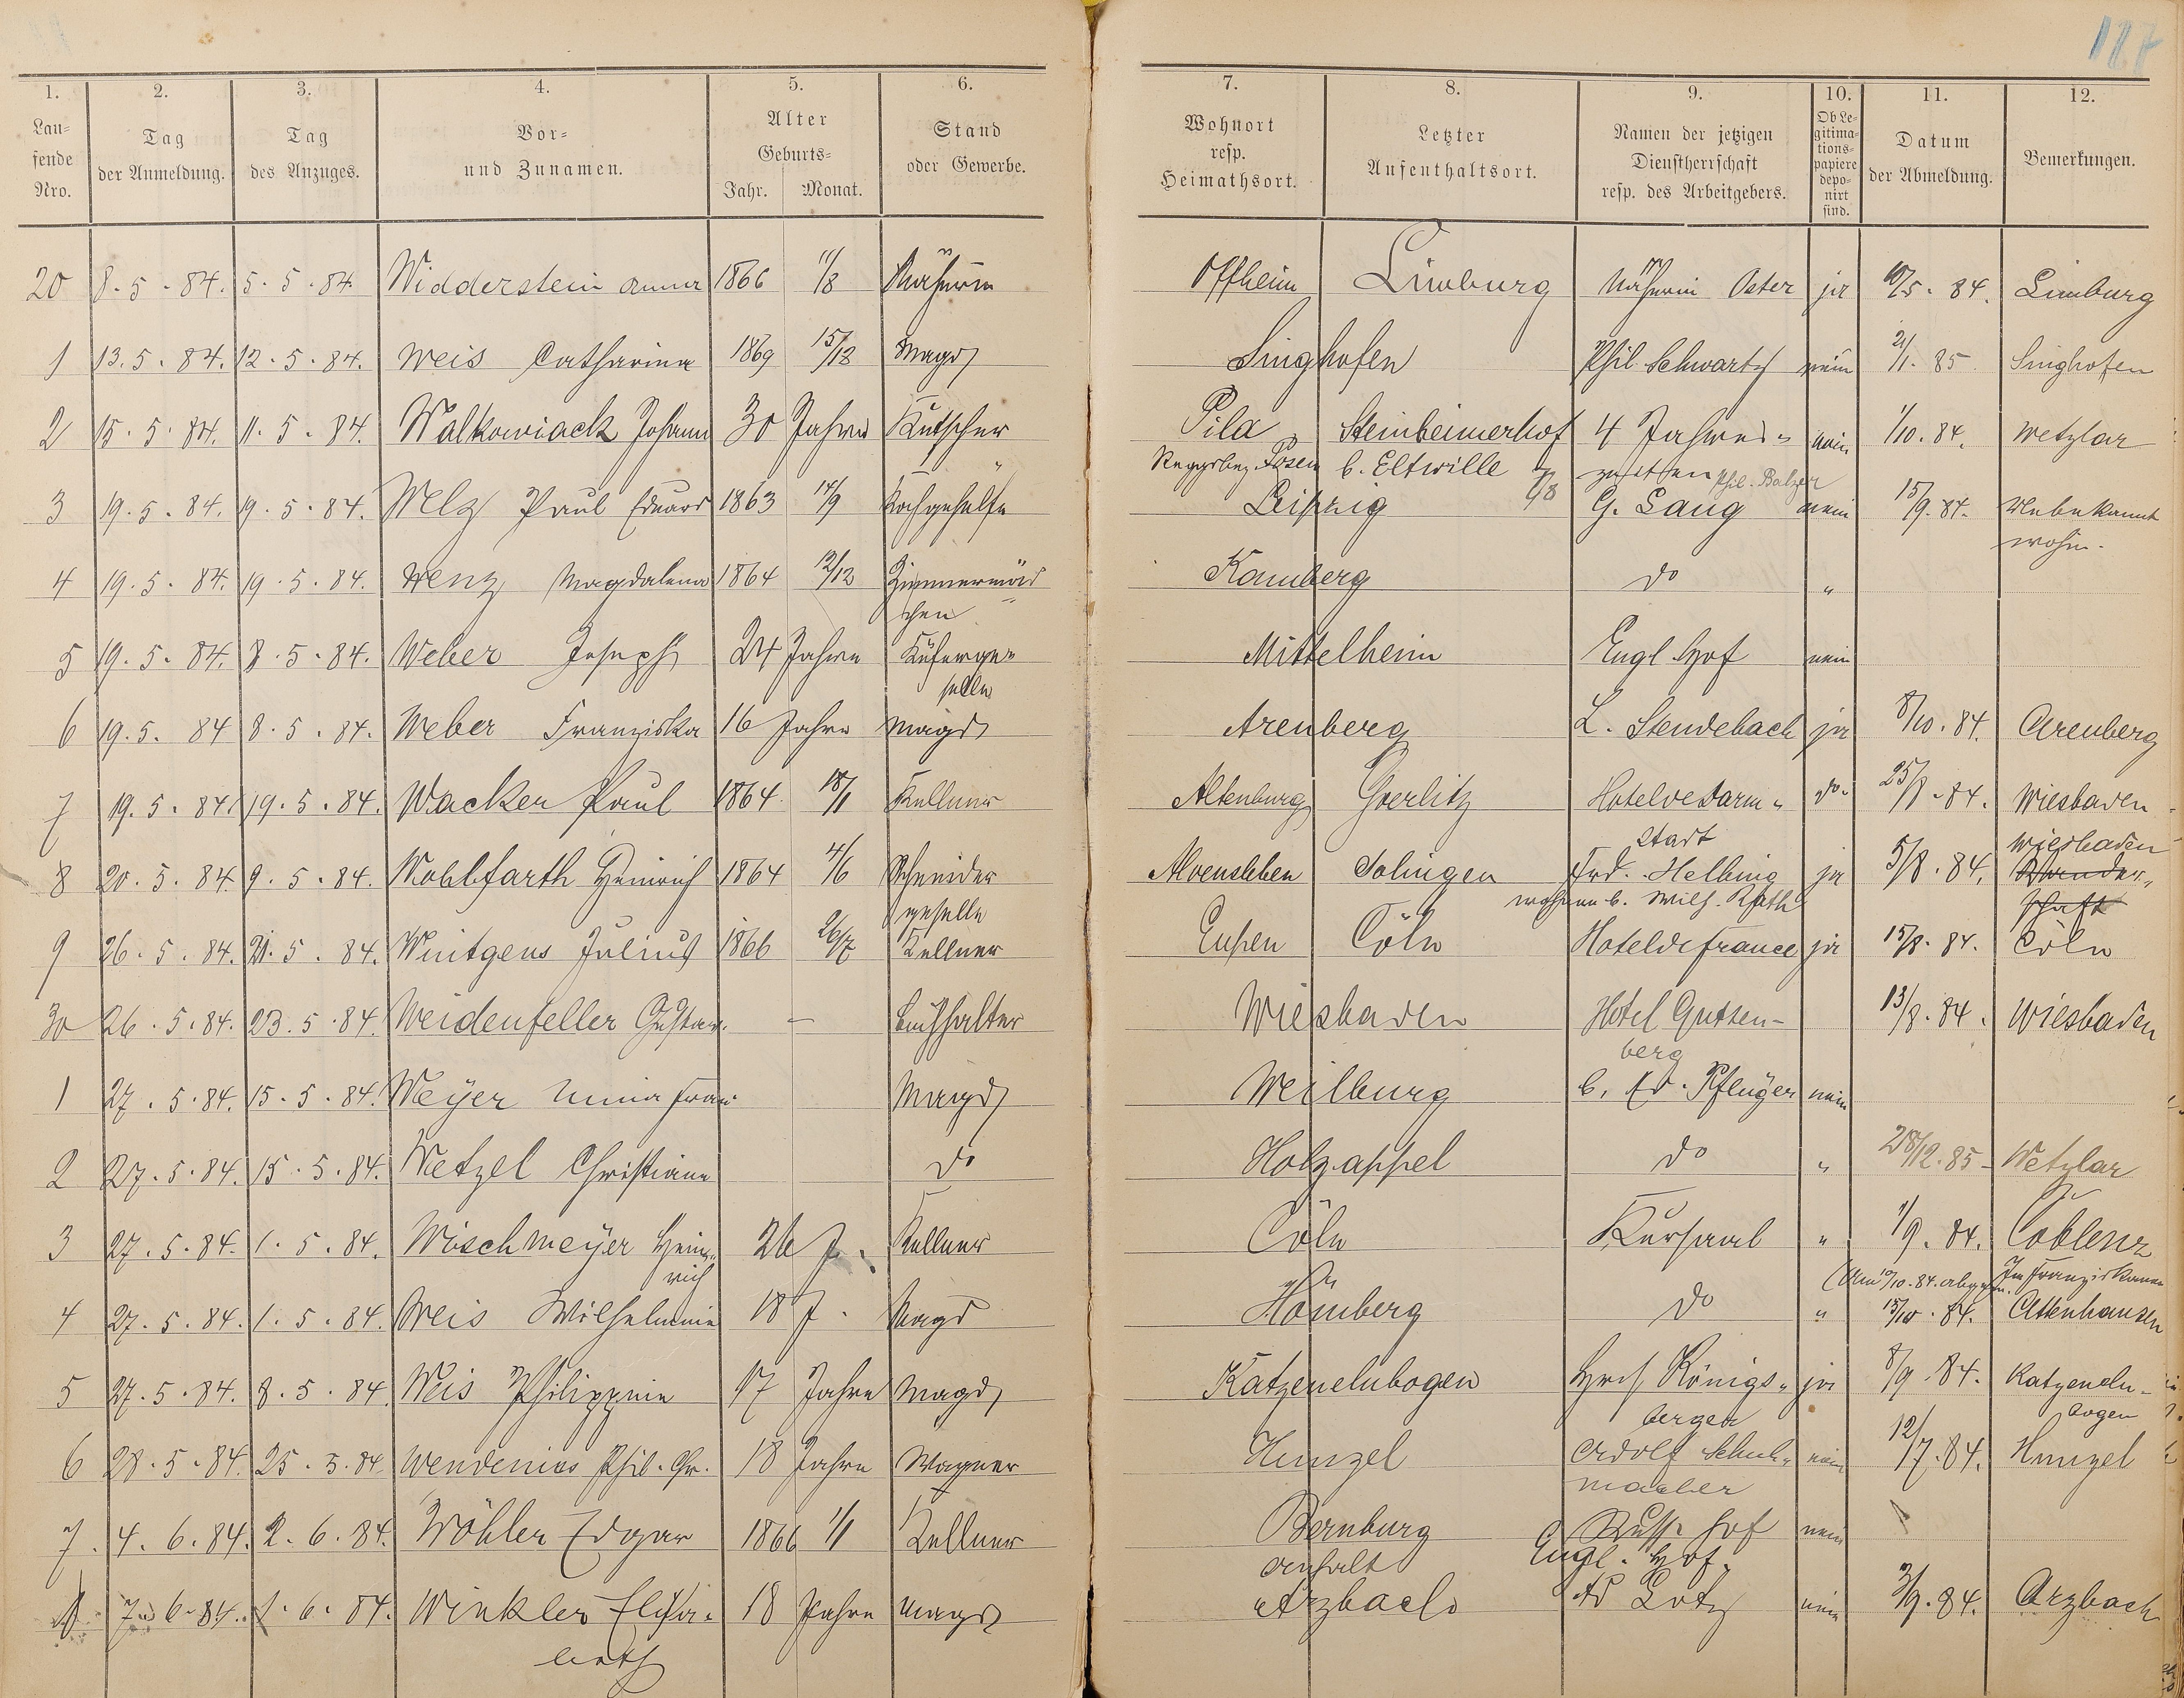 117
1. 2. 3. 4. 5. 6. 7. 8. 9. 10. 11. 12.
Lau-
fende
Nro.
Tag
der Anmeldung.
Tag
des Anzuges.
Vor-
und Zunamen.
Alter
Geburts-
Jahr. Monat.
Stand
oder Gewerbe.
Wohnort
resp.
Heimathsort.
Letzter
Aufenthaltsort.
Namen der jetzigen
Dienstherrschaft
resp. des Arbeitgebers.
Ob Le-
gitima-
tions-
papiere
depo-
nirt
sind.
Datum
der Abmeldung.
Bemerkungen.
20 8.5.84. 5.5.84 Widderstein Anna 1866 11/8 Näherin Offheim Limburg Näherin Oster ja 10/5.84. Limburg
1 13.5.84. 12.5.84. Weis Catharina 1869 15/12 Magd Singhofen Phil Schwartz nein 2/1.85 Singhofen
2 15.5.84. 11.5.84. Walkowiack Johann 30 Jahre Kutscher Pila Steinheimerhof 4 Jahres- nein 1/10.84. Wetzlar
Reggsbez. Posen b. Eltwille zeiten Phil. Balzer
3 19.5.84. 19.5.84. Welz Paul Eduard 1863 14/9 Kochgehülfe Leipzig G. Lang nein 15/9.84. Unbekannt
wohin.
4 19.5.84. 19.5.84. Wenz Magdalena 1864 12/12 Zimmermäd- Kamberg do "
chen
5 19.5.84. 8.5.84. Weber Joseph 24 Jahre Küferge- Mittelheim Engl Hof nein
selle
6 19.5.84 8.5.84. Weber Franziska 16 Jahre Magd Arenberg L. Stendebach ja 8/10.84. Arenberg
7 19.5.84. 19.5.84. Wacker Paul 1864 18/1 Kellner Altenburg Goerlitz Hotel de Darm- do. 25/8.84. Wiesbaden
stadt
Wiesbaden
8 20.5.84. 9.5.84. Wohlfarth Heinrich 1864 4/6 Schneider Alvensleben Solingen Frd. Helbing ja 5/8.84. Wander-
geselle wohnen b. Wilh. Rath schaft
9 26.5.84. 21.5.84. Wintgens Julius 1866 26/7 Kellner Eupen Cöln Hotel de France ja 15/8.84. Cöln
30 26.5.84. 23.5.84. Weidenfeller Gustav. - Buchhalter Wiesbaden Hotel Gutten- 13/8.84. Wiesbaden
berg
1 27.5.84. 15.5.84. Weyer Magd Weilburg b. Ed. Pflüger nein
2 27.5.84. 15.5.84. Wetzel Christiane do Holzappel do " 28/12.85 Wetzlar
3 27.5.84. 1.5.84. Wischmeyer Hein- 26 J. Kellner Cöln Kursaal " 1/9.84. Coblenz
rich
4 27.5.84. 1.5.84. Weis Wilhelmine 18 J. Magd Hömberg do " 15/10.84. Attenhausen
5 27.5.84. 8.5.84 Weis Philippine 17 Jahre Magd Katzenelnbogen Hrch Königs- ja 8/9.84. Katzeneln-
berger bogen
6 28.5.84. 25.5.84 Wendenius Phil. Chr. 18 Jahre Wagner Hunzel Adolf Schuh- nein 12/7.84. Hunzel
macher
7. 4.6.84. 2.6.84. Wöhler Edgar 1866 1/1 Kellner Bernburg Russ. Hof nein
Anhalt Engl. Hof.
8 7.6.84. 1.6.84. Winkler Elisa- 18 Jahre Magd Arzbach Ad Lotz nein 3/9.84. Arzbach
beth